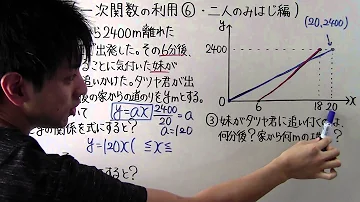 一次関数の利用⑥・二人のみはじ編)
ら2400m離れた
で出発した。その6分後
ることに気付いた妹が
追いかけた。タツヤ君が出
後の家からの道のりをymとする。
y=ax
2400/20=a
a=120
の関係を式にすると?
y=120x( ≦x≦ )
すると?
y
2400
(20,2400)
0
6
18
20
x
③妹がタツヤ君に追い付くのは、
何分後?家から何mの